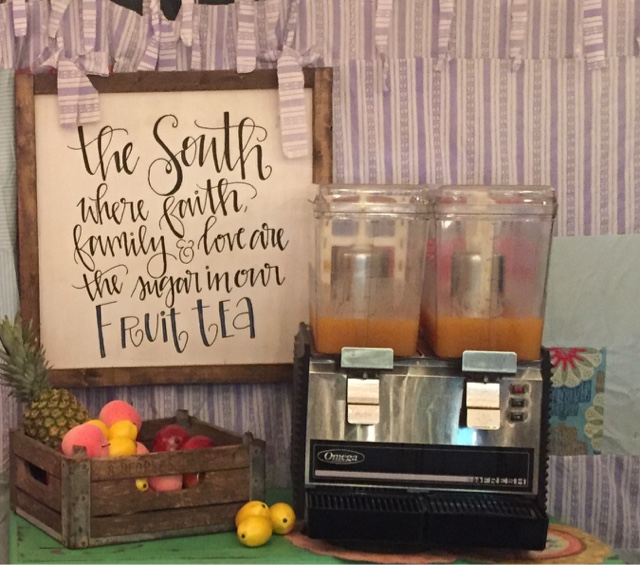 the South
where faith,
family & love are
the sugar in our
FRUiT tEA
Omega